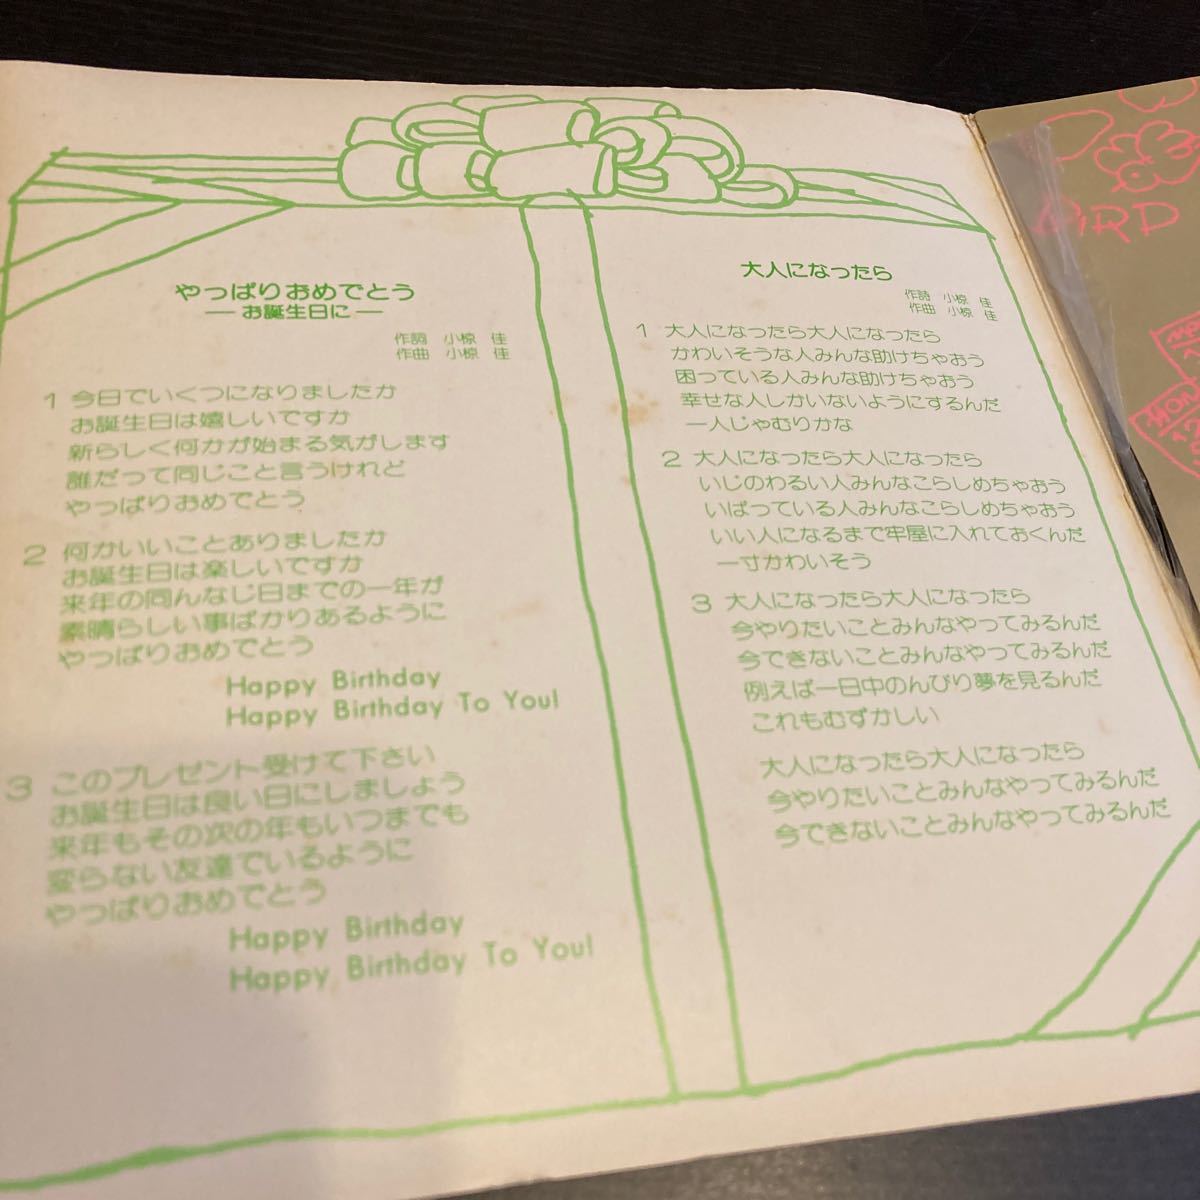 やっぱりおめでとう
—お誕生日に—
作詞 小椋 佳
作曲 小椋 佳
1 今日でいくつになりましたか
お誕生日は嬉しいですか
新らしく何かが始まる気がします
誰だって同じこと言うけれど
やっぱりおめでとう
2 何かいいことありましたか
お誕生日は楽しいですか
来年の同んなじ日までの一年が
素晴らしい事ばかりあるように
やっぱりおめでとう
Happy Birthday
Happy Birthday To You!
3 このプレゼント受けて下さい
お誕生日は良い日にしましよう
来年もその次の年もいつまでも
変らない友達でいるように
やっぱりおめでとう
Happy Birthday
Happy Birthday To You!
大人になったら
作詩 小椋 佳
作曲 小椋 佳
1 大人になったら大人になったら
かわいそうな人みんな助けちゃおう
困っている人みんな助けちゃおう
幸せな人しかいないようにするんだ
一人じゃむりかな
2 大人になったら大人になったら
いじのわるい人みんなこらしめちゃおう
いばっている人みんなこらしめちゃおう
いい人になるまで牢屋に入れておくんだ
一寸かわいそう
3 大人になったら大人になったら
今やりたいことみんなやってみるんだ
今できないことみんなやってみるんだ
例えば一日中のんびり夢を見るんだ
これもむずかしい
大人になったら大人になったら
今やりたいことみんなやってみるんだ
今できないことみんなやってみるんだ
BIRD